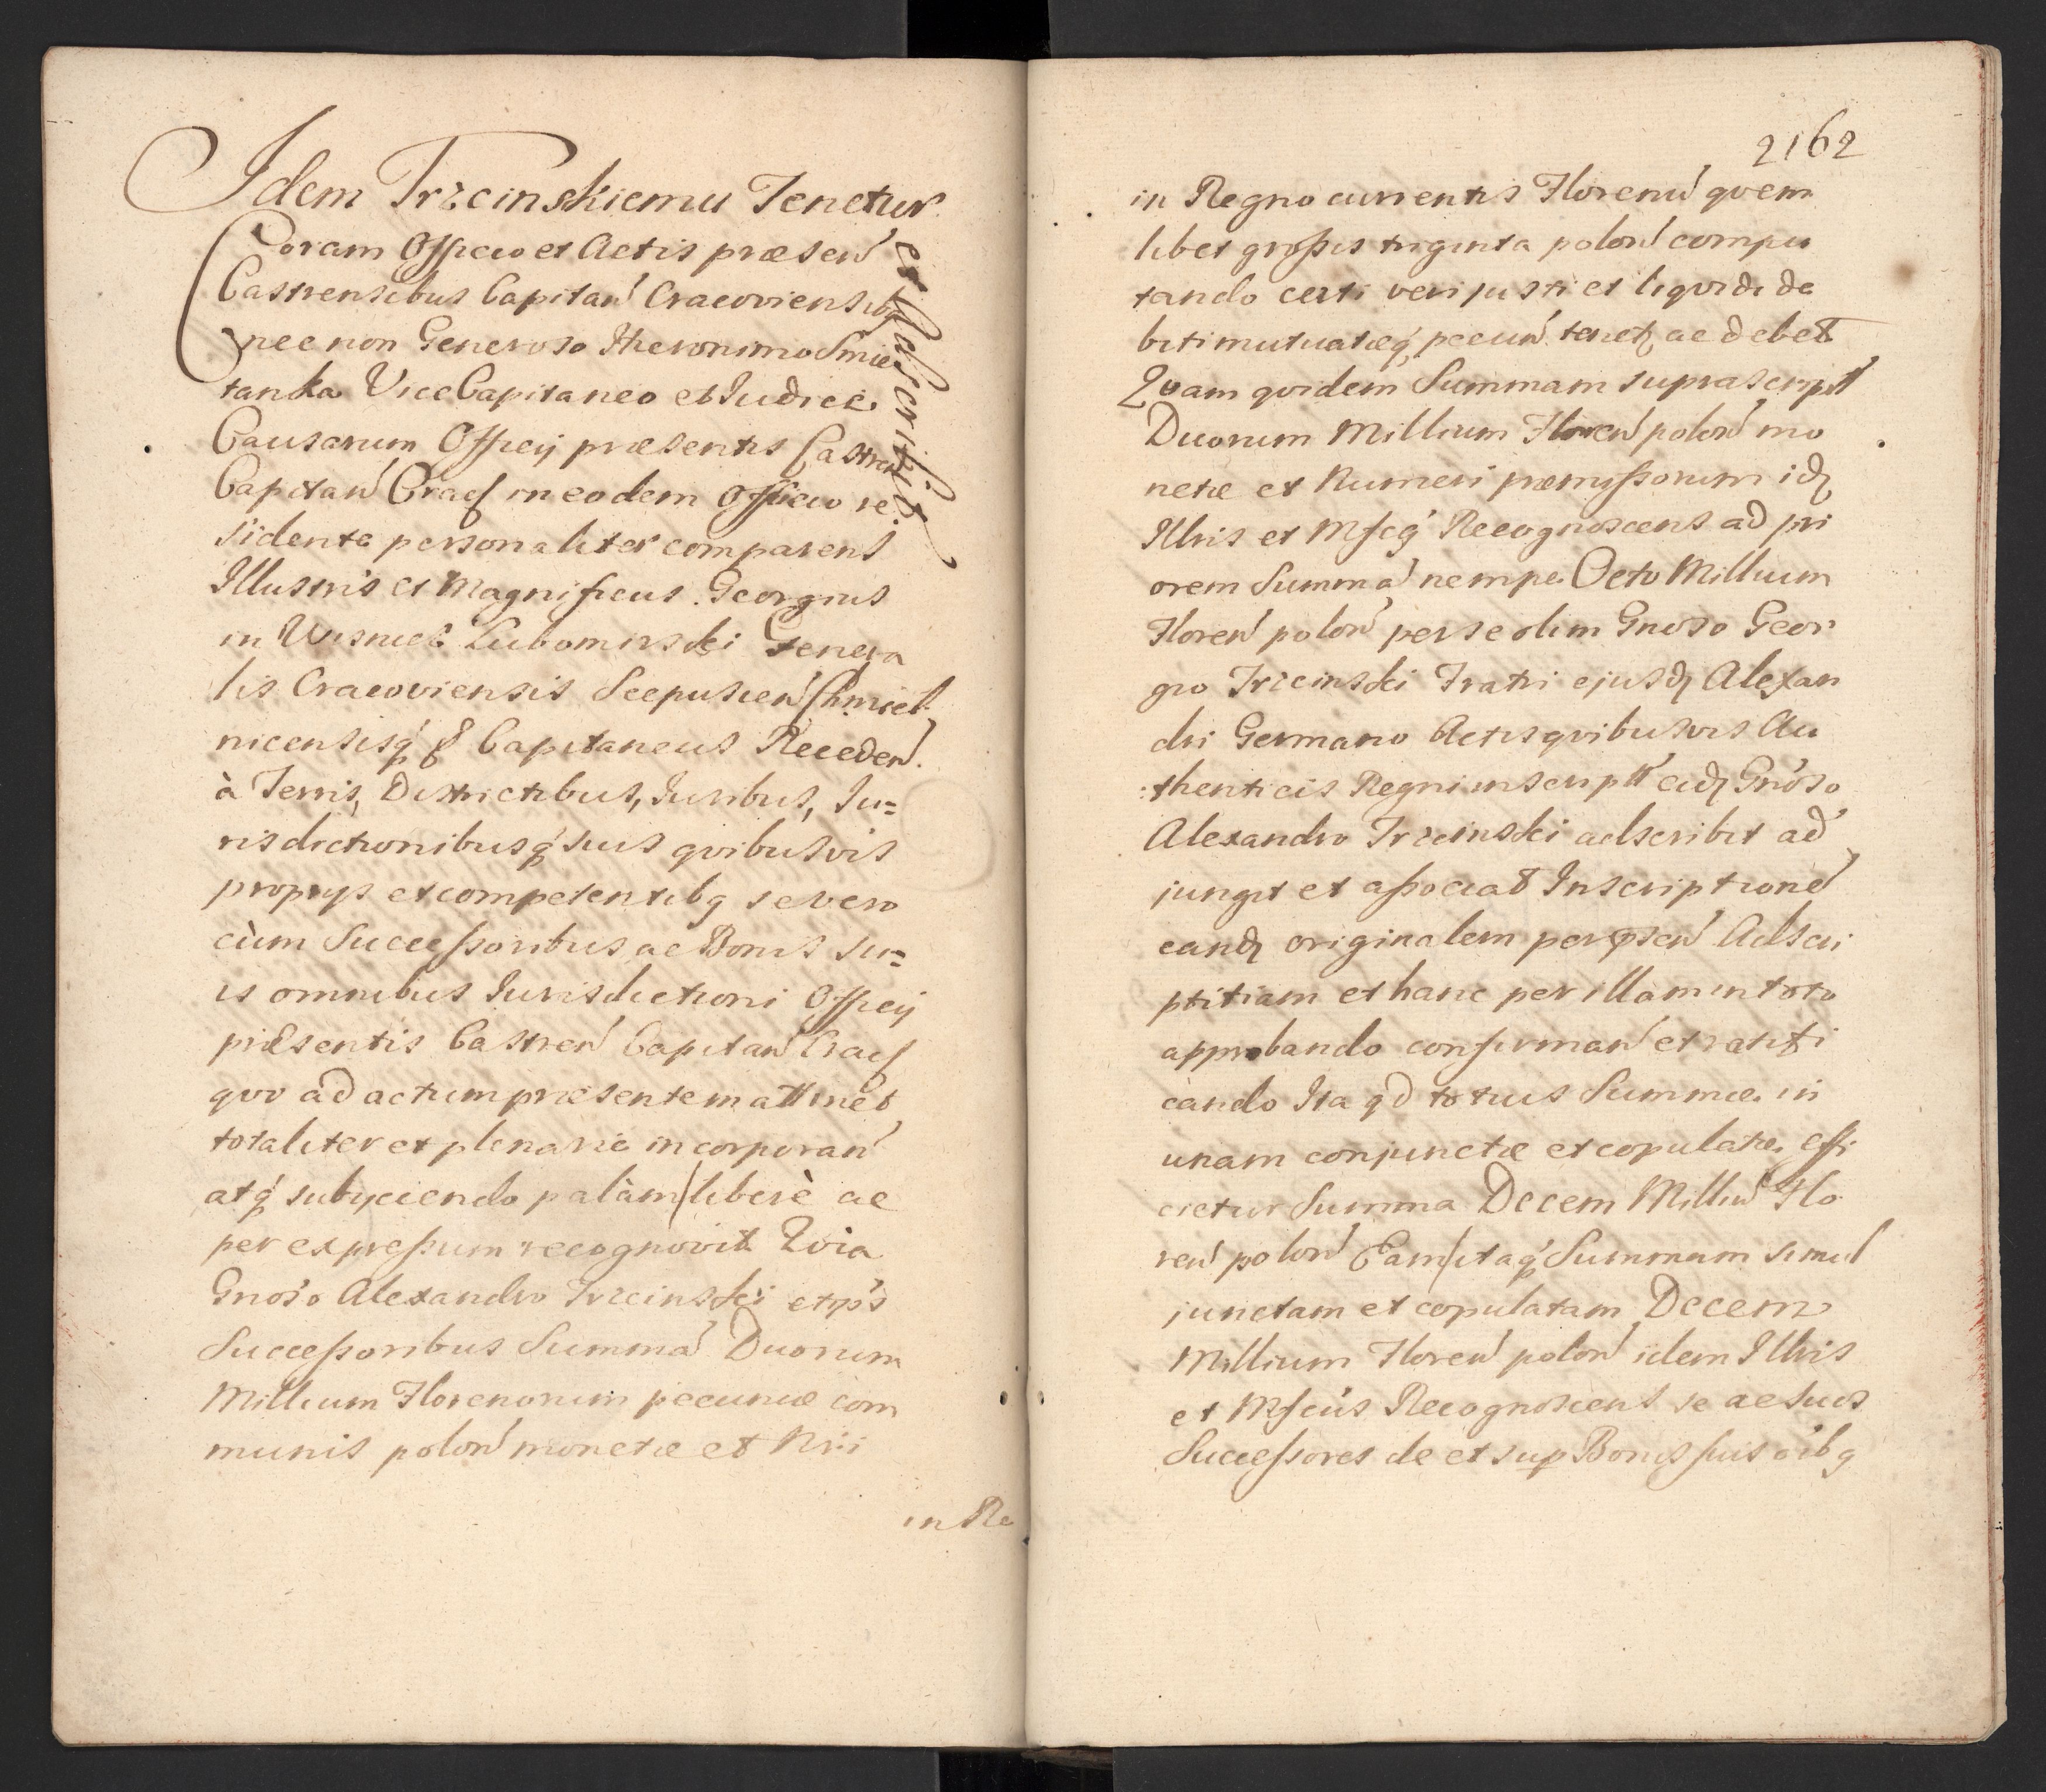 Idem Trzcinskiemu Tenetur
et Adscribit
Coram Officio et Actis præsen̄
Castrensibus Capitan̄ Cracoviensibq
necnon Generoso Hieronimo Smie
tanka ViceCapitaneo et Iudice
Causarum Officij præsentis Castren̄
Capitan̄ Cracȷ in eodem Officio re
sidente personaliter comparens
Illustris et Magnificus Georgius
in Wisnicz Lubomirski Genera
lis Cracoviensis Scepusien̄ Chmiel
nicensisq́ȝ Capitaneus Receden̄
à Terris, Districtibus, Iuribus, Iu=
risdictionibusq́ suis qvibusvis
proprys et competentibq se vero
cùm Successoribus ac Bonis Su=
is omnibus Iurisdictioni Officij
præsentis Castren̄ Capitan̄ Cracȷ
qvo ad actum præsentem attinet
totaliter et plenarie incorporan̄
atq́ subijciendo palàm liberè ac
per expressum recognovit Qvia
Gnoso Alexandro Trzcinski et ips̄
Successoribus Summā Duorum
Millium Florenorum pecuniæ com
munis polon̄ monetæ et Nri
in Re
2162
in Regno currentis Florenū qvem
libet grossis triginta polon̄ compu
tando certi veri justi et liqvidi de
biti mutuatæq́ pecun̄ tenetȝ ac debet
Qvam qvidem Summam suprascriptt
Duorum Millium Floren̄ polon̄ mo
netæ et Numeri præmissorum idȝ
Illris et Mfcq́ Recognoscens ad pri
orem Summā nempe Octo Millium
Floren̄ polon̄ per se olim Gnoso Geor
gio Trzcinski Fratri ejusdȝ Alexan
dri Germano Actis qvibusvis Au
thenticis Regni inscriptt eidȝ Gnoso
Alexandro Trzcinski adscribit ad
jungit et associat Inscriptionē
eandȝ originalem per p̄sen̄ Adscri
ptitiam et hanc per illam in toto
approbando confirman̄ et ratifi
cando Ita qd totius Summæ in
unam conjunctæ et copulatæ effi
cietur Summa Decem Milliū Flo
ren̄ polon̄ Eam itaq́ Summam simul
junctam et copulatam Decem
Millium Floren̄ polon̄ idem Illris
et Mfcus Recognoscens se ac suos
Successores de et sup̄ Bonis suis oībq